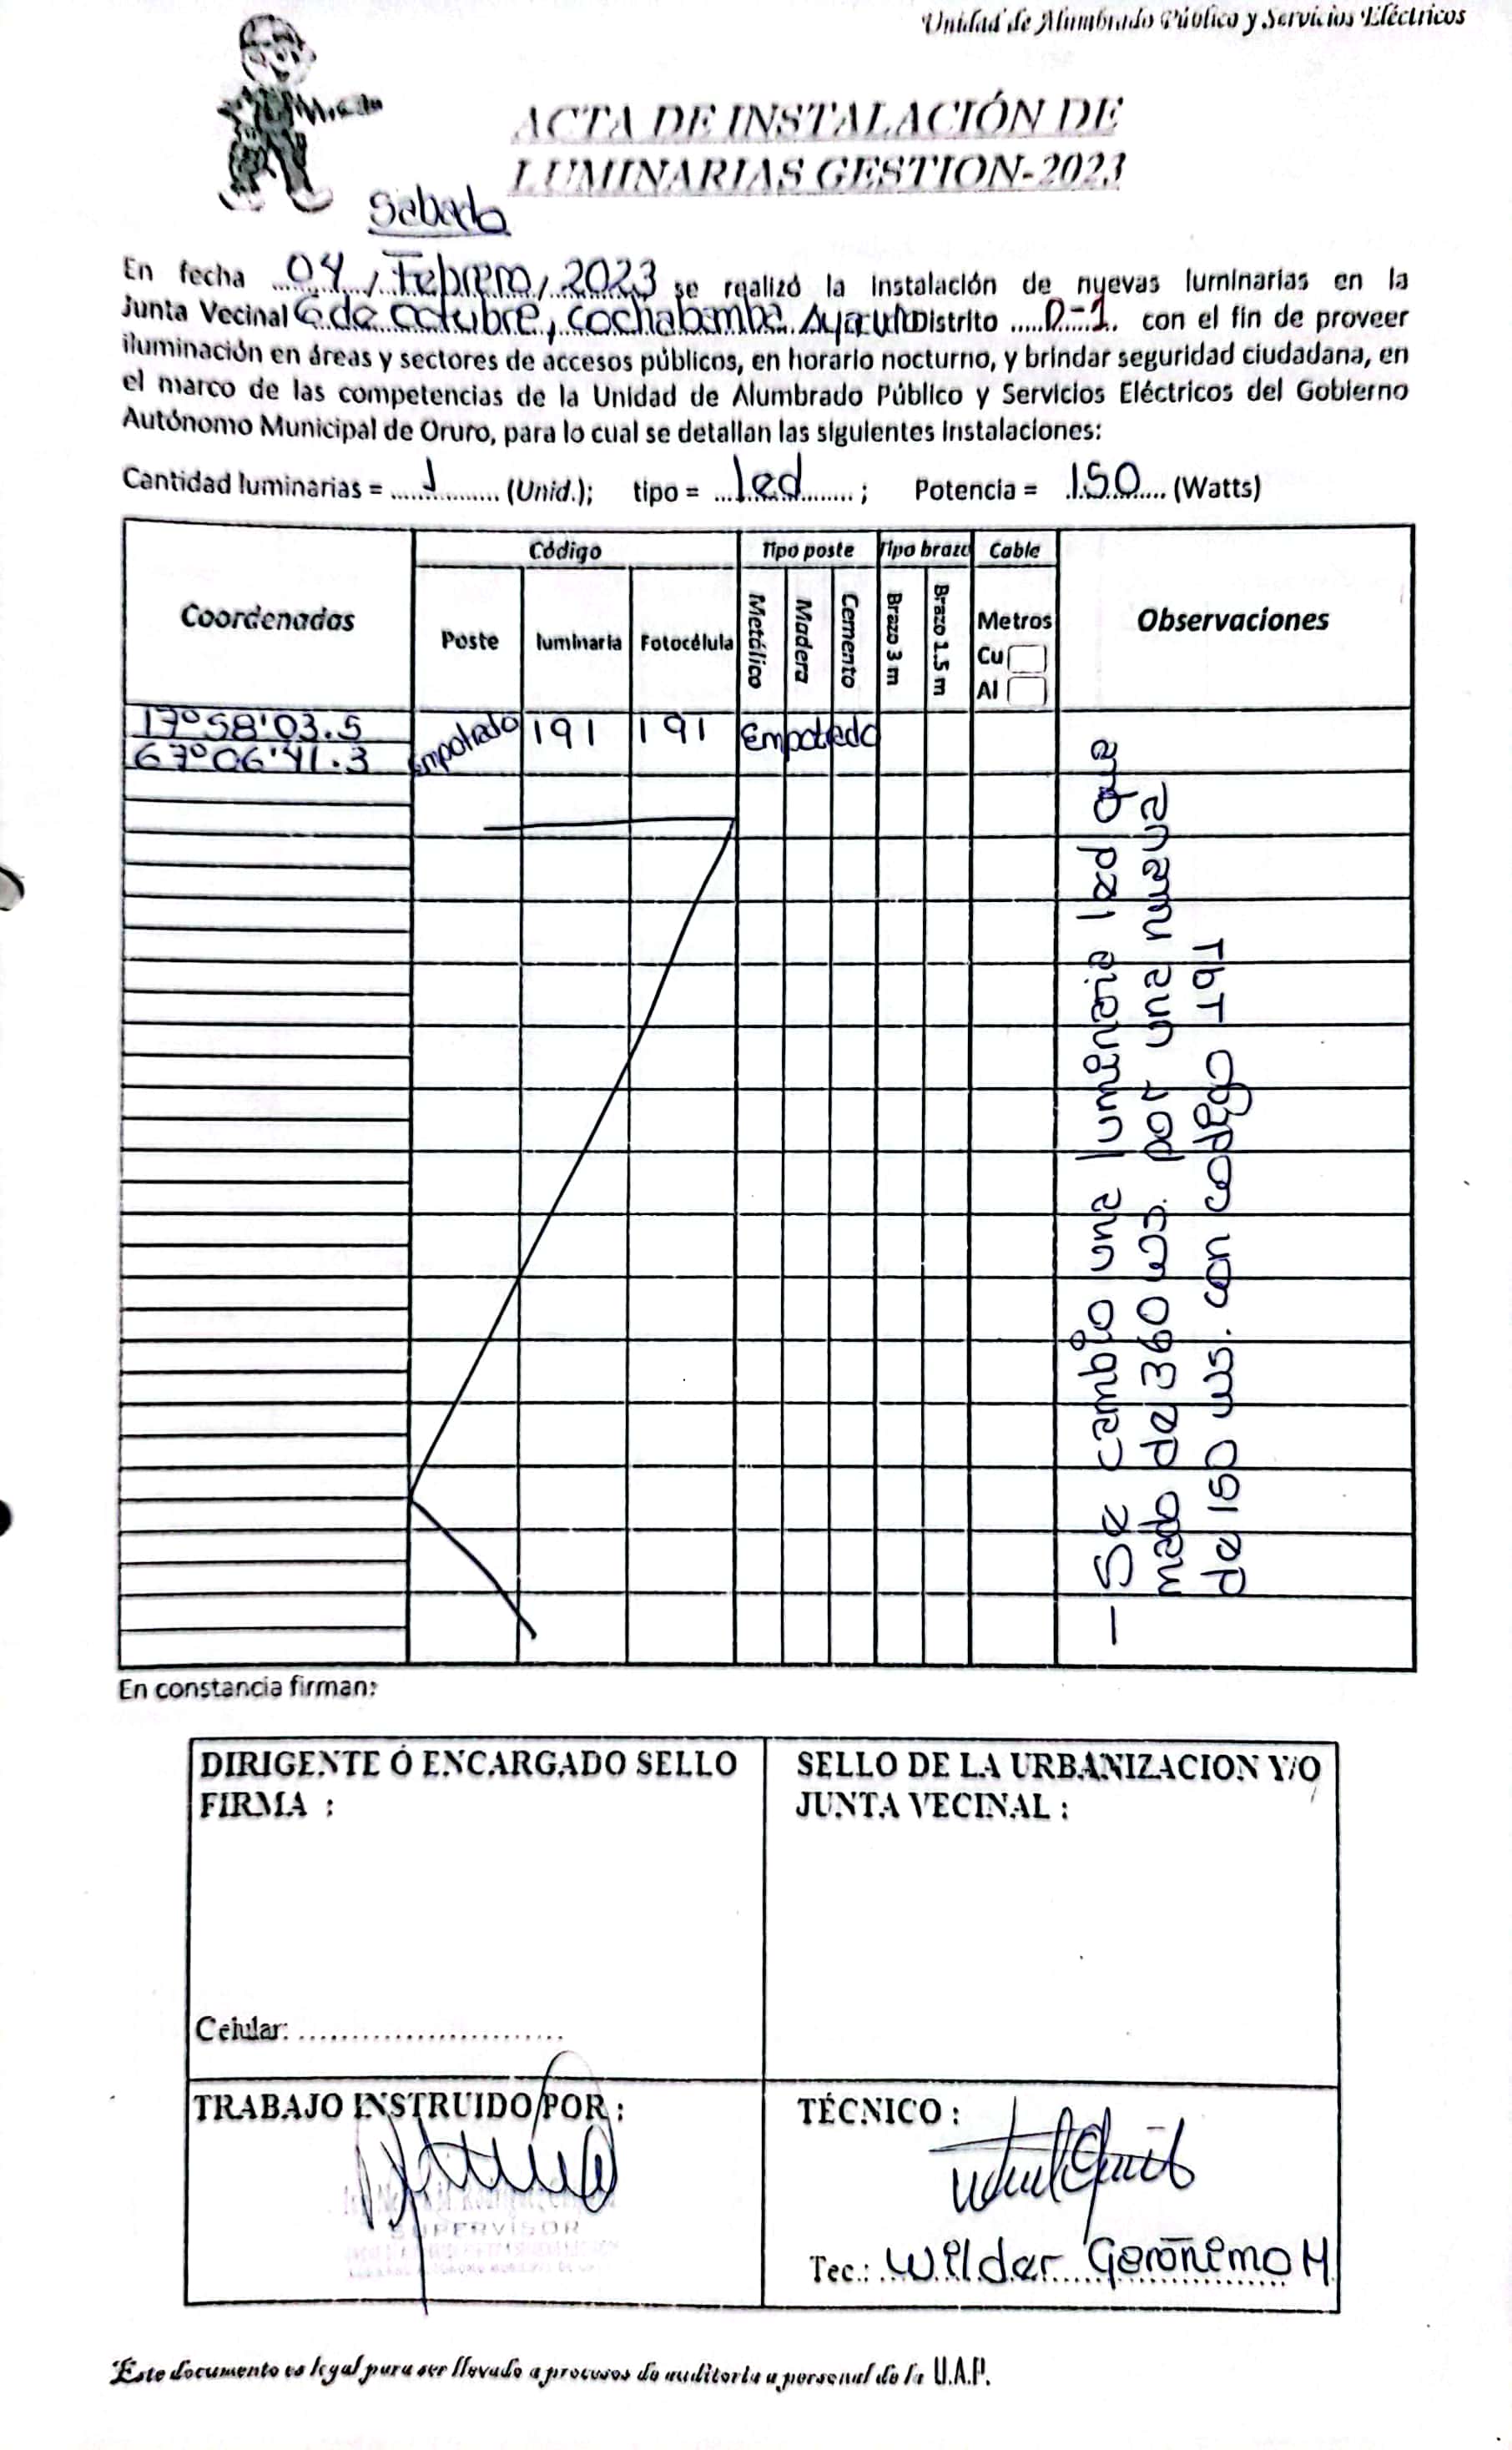 Unidad de Alumbrado Público y Servicios Eléctricos
ACTA DE INSTALACIÓN DE
LUMINARIAS GESTION-2023
Sabado
En fecha 04, Febrero, 2023 se realizó la instalación de nuevas luminarias en la
Junta Vecinal 6 de Octubre, Cochabamba. Distrito D-1. con el fin de proveer
iluminación en áreas y sectores de accesos públicos, en horario nocturno, y brindar seguridad ciudadana, en
el marco de las competencias de la Unidad de Alumbrado Público y Servicios Eléctricos del Gobierno
Autónomo Municipal de Oruro, para lo cual se detallan las siguientes instalaciones:
Cantidad luminarias = 1 (Unid.); tipo = led ; Potencia = 150 (Watts)
Coordenadas Código Tipo poste Tipo brazo Cable Observaciones
Poste luminaria Fotocélula Metálico Madera Cemento Brazo 3 m Brazo 1.5 m Metros
Cu
Al
17°58'03.5 Empotrado 191 191 Empotrado
67°06'41.3
- Se cambio una luminaria led que
mado de 360 ws. por una nueva
de 150 ws. con codigo 191
En constancia firman:
DIRIGENTE Ó ENCARGADO SELLO
FIRMA :
Celular: ..........................
SELLO DE LA URBANIZACION Y/O
JUNTA VECINAL :
TRABAJO INSTRUIDO POR :
SUPERVISOR
TÉCNICO :
Tec.: Wilder Geronimo M
Este documento es legal para ser llevado a procesos de auditoria a personal de la U.A.P.